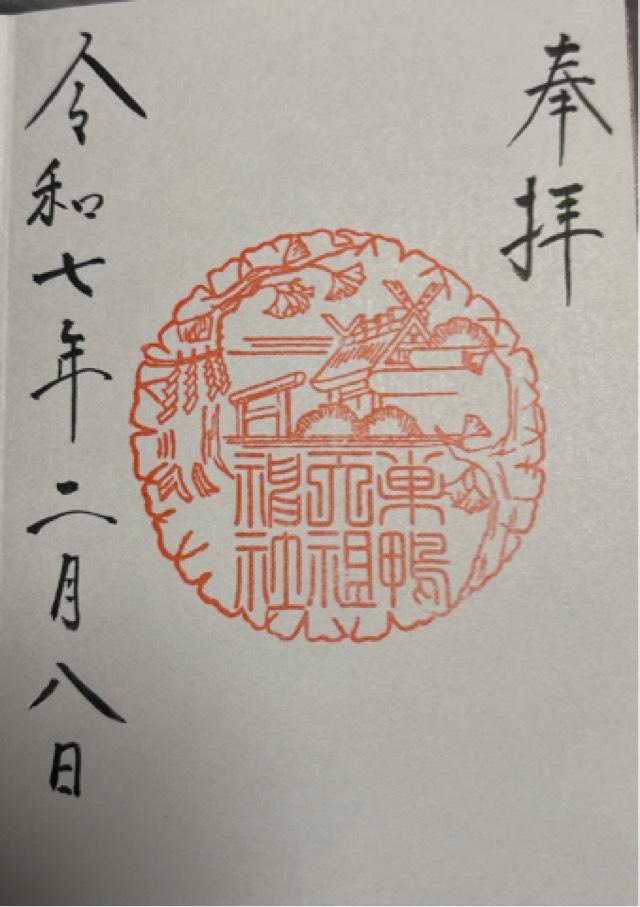 奉拝
巣鴨
天祖
神社
令和七年二月八日